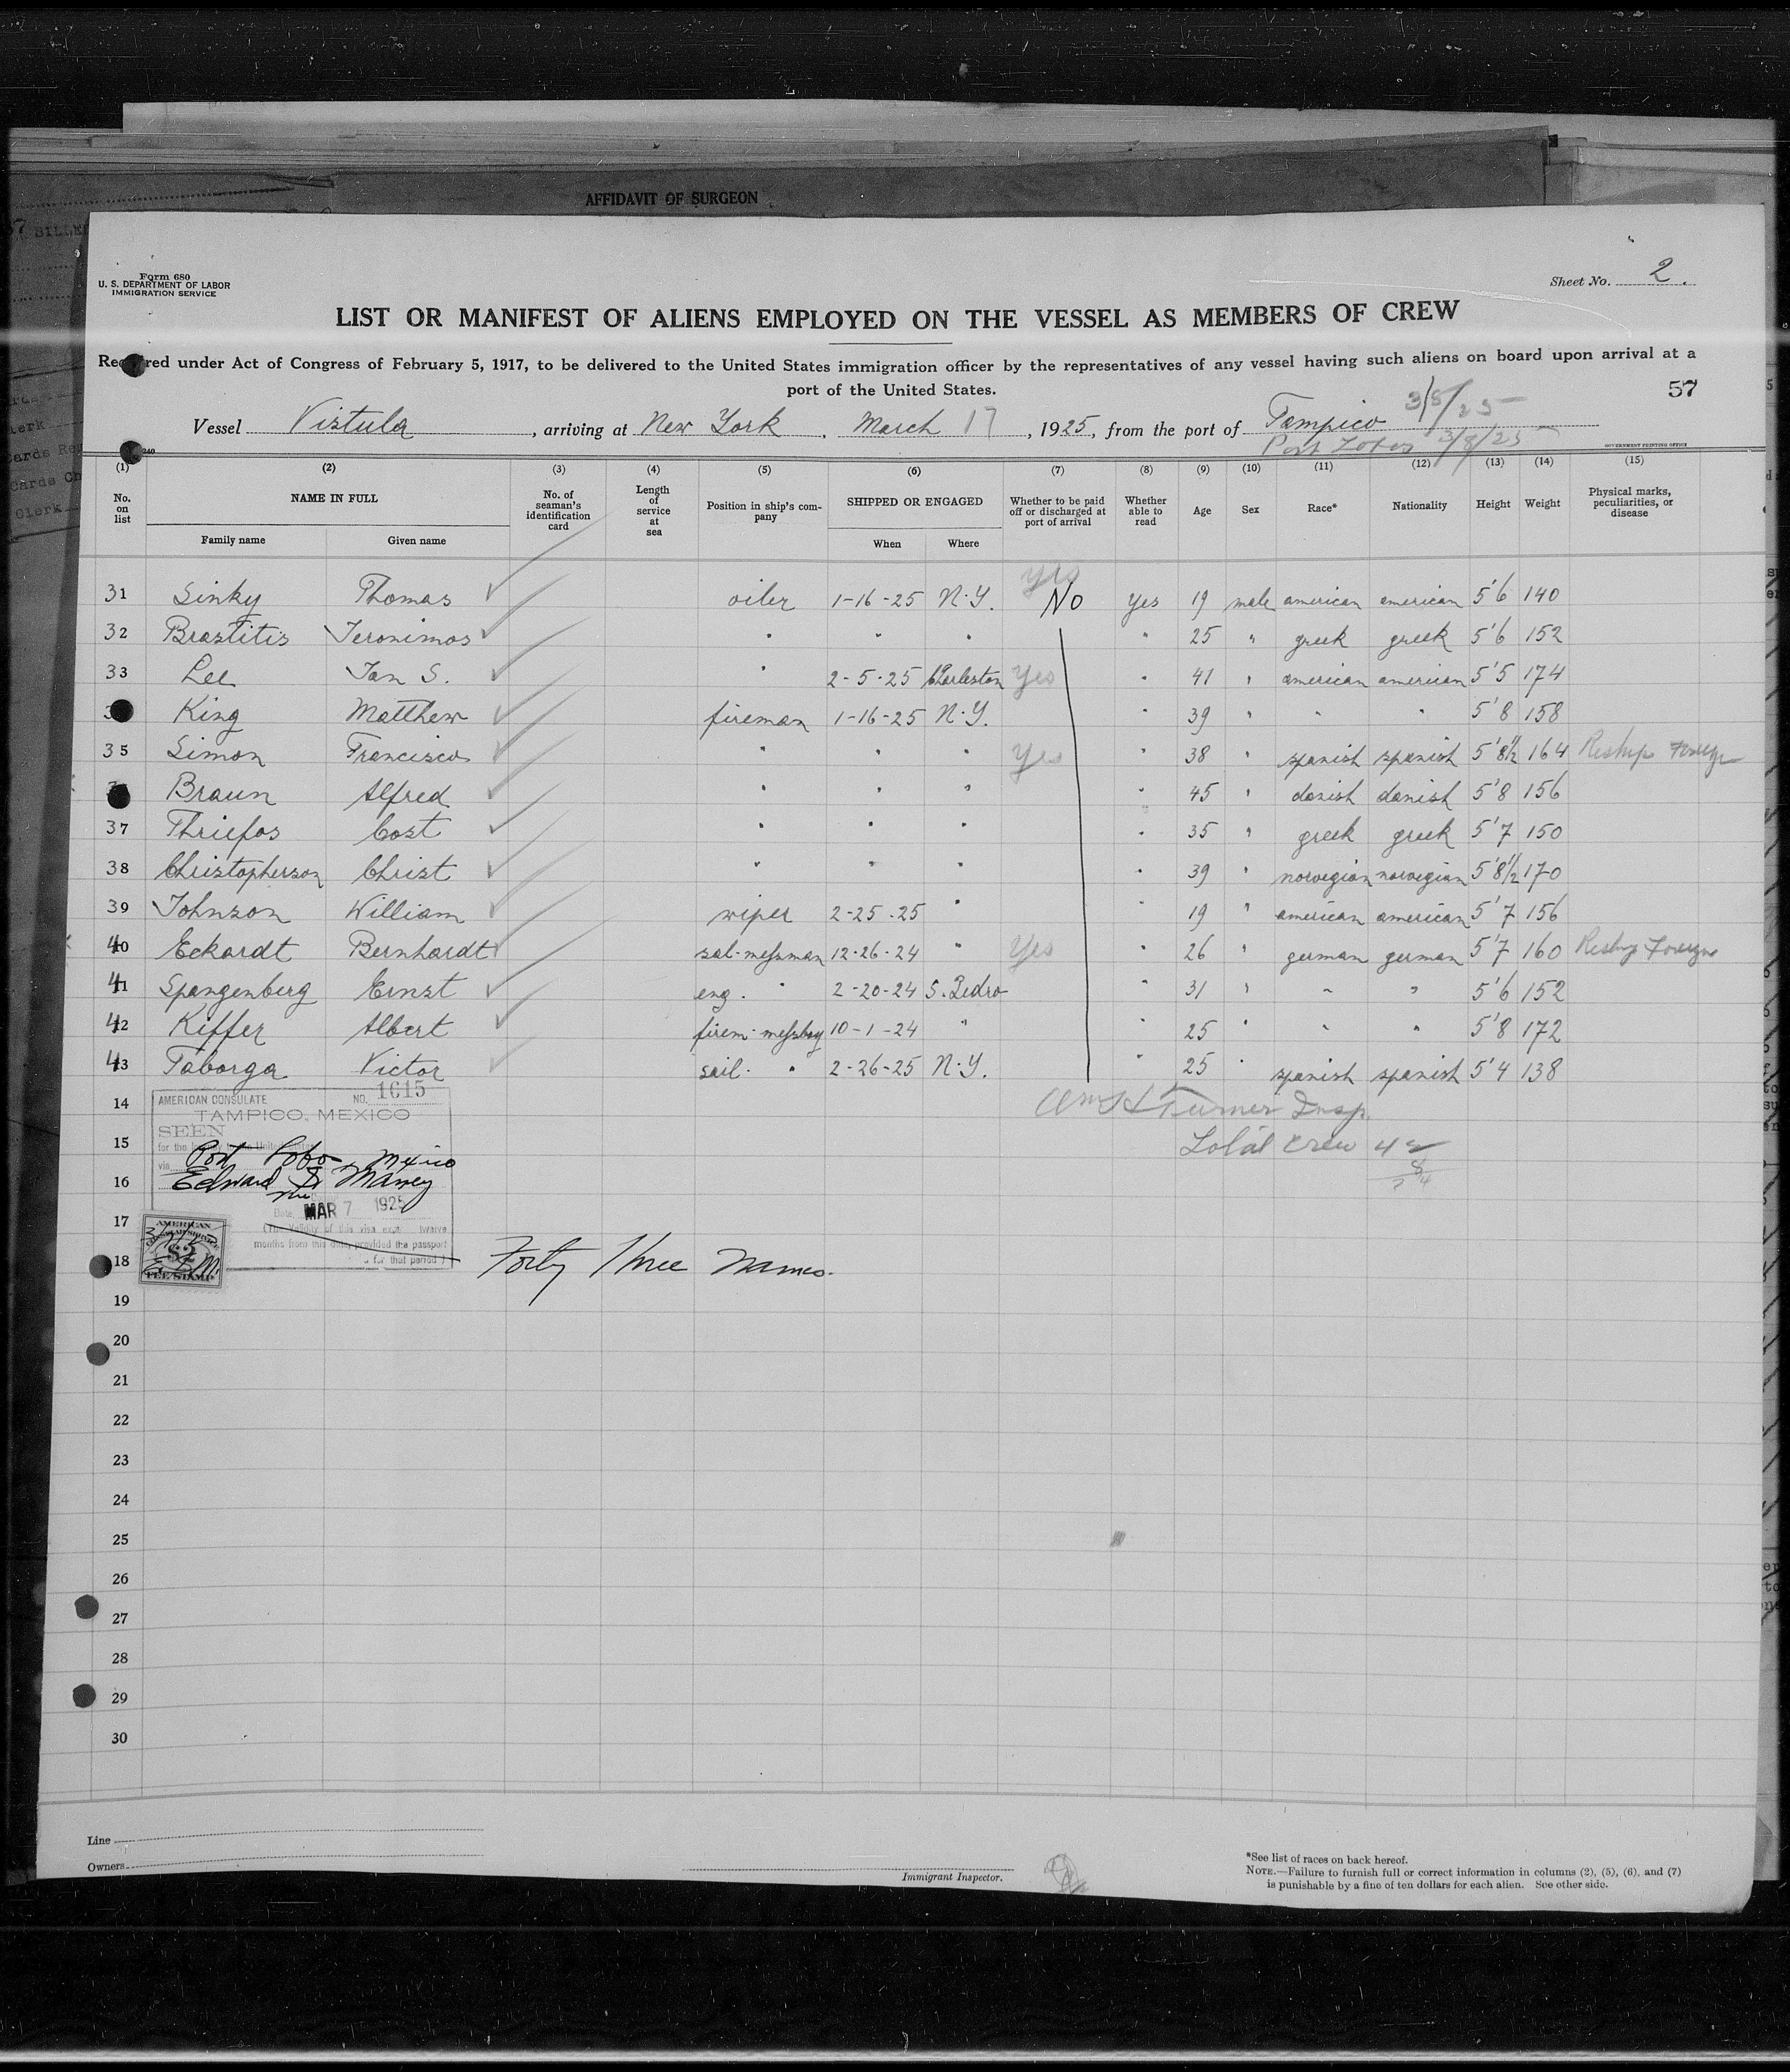 AFFIDAVIT OF SURGEON
Form 680
U. S. DEPARTMENT OF LABOR
IMMIGRATION SERVICE
Sheet No. 2.
LIST OR MANIFEST OF ALIENS EMPLOYED ON THE VESSEL AS MEMBERS OF CREW
Required under Act of Congress of February 5, 1917, to be delivered to the United States immigration officer by the representatives of any vessel having such aliens on board upon arrival at a
port of the United States.
57
Vessel Vistula, arriving at New York, March 17, 1925, from the port of Tampico 3/5/25
Port Lobos 3/8/25
GOVERNMENT PRINTING OFFICE
(1) (2) (3) (4) (5) (6) (7) (8) (9) (10) (11) (12) (13) (14) (15)
No. on list NAME IN FULL No. of seaman's identification card Length of service at sea Position in ship's company SHIPPED OR ENGAGED Whether to be paid off or discharged at port of arrival Whether able to read Age Sex Race* Nationality Height Weight Physical marks, peculiarities, or disease
Family name Given name When Where
yes
31 Sinky Thomas oiler 1-16-25 N.Y. No yes 19 male american american 5'6 140
32 Brastitis Jeronimos " " " " 25 " greek greek 5'6 152
33 Lee Jan S. " 2-5-25 Charleston Yes " 41 " american american 5'5 174
King Matthew fireman 1-16-25 N.Y. " 39 " " " 5'8 158
35 Simon Francisco " " " Yes " 38 " spanish spanish 5'8½ 164 Reship Foreign
Braun Alfred " " " " 45 " danish danish 5'8 156
37 Thriefos Cost " " " " 35 " greek greek 5'7 150
38 Christopherson Christ " " " " 39 " norvegian norvegian 5'8½ 170
39 Johnson William wiper 2-25-25 " " 19 " american american 5'7 156
40 Eckardt Bernhardt sal-messman 12-26-24 " Yes " 26 " german german 5'7 160 Reship Foreign
41 Spangenberg Ernst eng. " 2-20-24 S. Pedro " 31 " " " 5'6 152
42 Kiffer Albert firem-messboy 10-1-24 " 25 " " " 5'8 172
43 Taborga Victor sail. " 2-26-25 N.Y. " 25 " spanish spanish 5'4 138
AMERICAN CONSULATE NO. 1615
TAMPICO, MEXICO
SEEN
14 Wm H Turner Insp.
15 Total crew 42
via Port Lobos, Mexico
16 Edward S. Maney
Date MAR 7 1925
17
(The validity of this visa expires twelve
months from this date, provided the passport
for that period)
AMERICAN
$2
FEE STAMP
18 Forty Three names.
19
20
21
22
23
24
25
26
27
28
29
30
Line
Owners
Immigrant Inspector.
*See list of races on back hereof.
NOTE.—Failure to furnish full or correct information in columns (2), (5), (6), and (7)
is punishable by a fine of ten dollars for each alien. See other side.